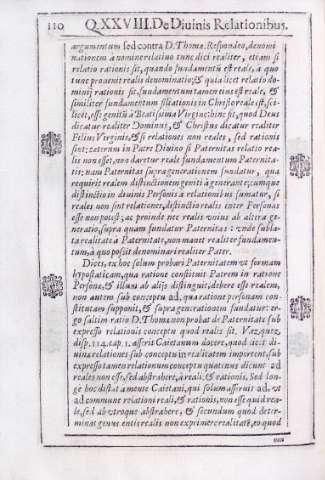 110 Q. XXVIII. De Diuinis Relationibus.
argumentum sed contra D. Thomæ. Respondeo, denomi
nationem à nomine relatiuo tunc dici realiter, etiam si
relatio rationis sit, quando fundamentũ est reale, à quo
tunc prouenit realis denominatio; & quia licet relatio do-
minij rationis sit, fundamentum tamen eius est reale, &
similiter fundamentum filiationis in Christo reale est, sci-
licet, esse genitũ à Beatissima Virgine: hinc sit, quod Deus
dicatur realiter Dominus, & Christus dicatur realiter
Filius Virginis, & si relationes non reales, sed rationis
sint: cæterum in Patre Diuino si Paternitas relatio rea-
lis non esset, non daretur reale fundamentum Paternita-
tis: nam Paternitas supra generationem fundatur, qua
requirit realem distinctionem geniti à generante; cumque
distinctio in diuinis Personis à relationibus sumatur, si
reales non sint relationes, distinctio realis inter Personas
esse non potest; ac proinde nec realis vnius ab altera ge-
neratio, supra quam fundatur Paternitas: vnde subla-
ta realitate à Paternitate, non manet realiter fundamen-
tum, à quo possit denominari realiter Pater.
Dices, ex hoc solum probari Paternitatem vt formam
hypostaticam, qua ratione constituit Patrem in ratione
Personæ, & illum ab alijs distinguit, debere esse realem,
non autem sub conceptu ad, qua ratione personam con-
stitutam supponit, & supra generationem fundatur: er-
go saltim ratio D. Thomæ non probat de Paternitate sub
expresso relationis conceptu quod realis sit. Vazquez,
disp. 114. cap. 1. asserit Caietanum docere, quod licet di-
uinæ relationes sub conceptu in realitatem importent, sub
expresso tamen relationum conceptu quatenus dicunt ad
reales non esse, sed abstrahere, à reali, & rationis. Sed lon-
gè hoc distat à mente Caietani, qui solum asseruit ad, vt
ad commune relationi reali, & rationis, non esse quid rea-
le, sed ab vtroque abstrahere, & secundum quod deter-
minat genus entis realis non exprimere realitatẽ, eo quod